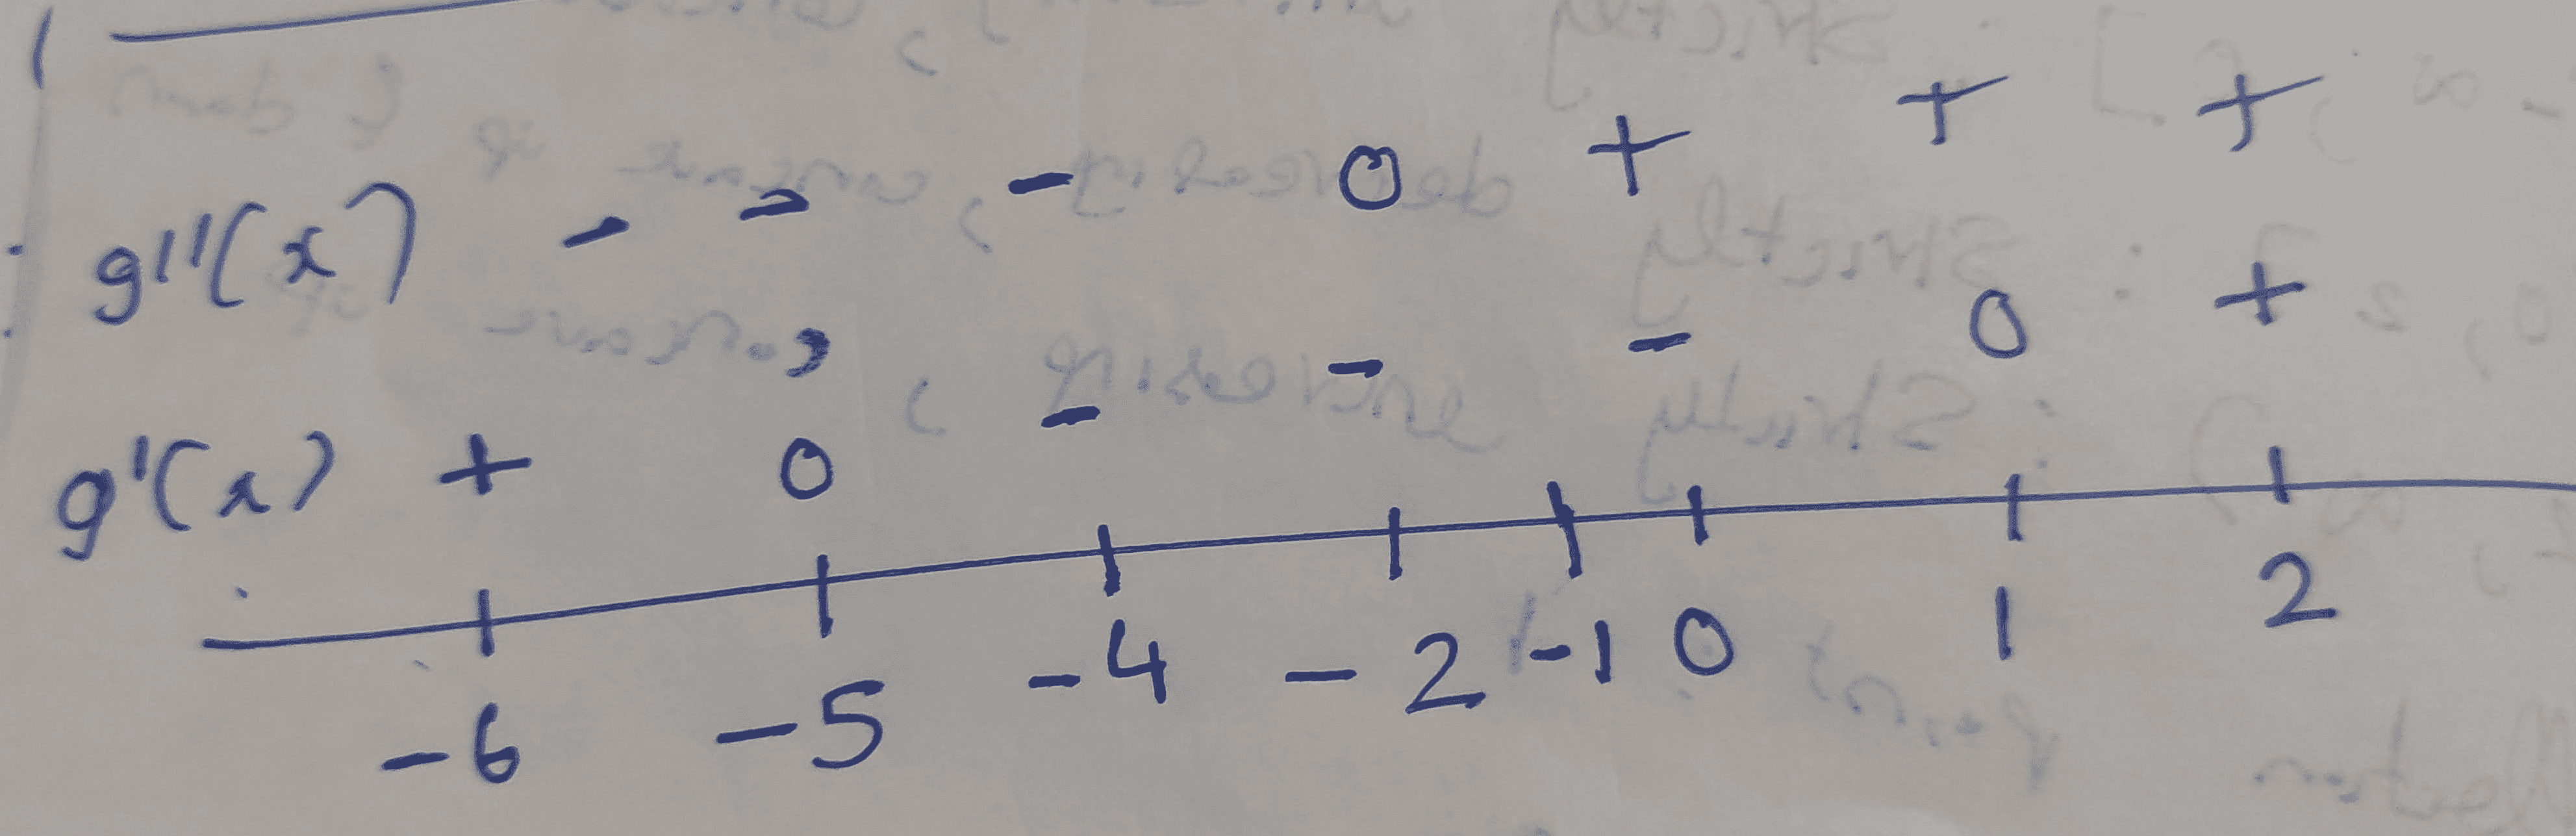 g''(x) - - - 0 + + +
g'(x) + 0 - - - 0 +
-6 -5 -4 -2 -1 0 1 2